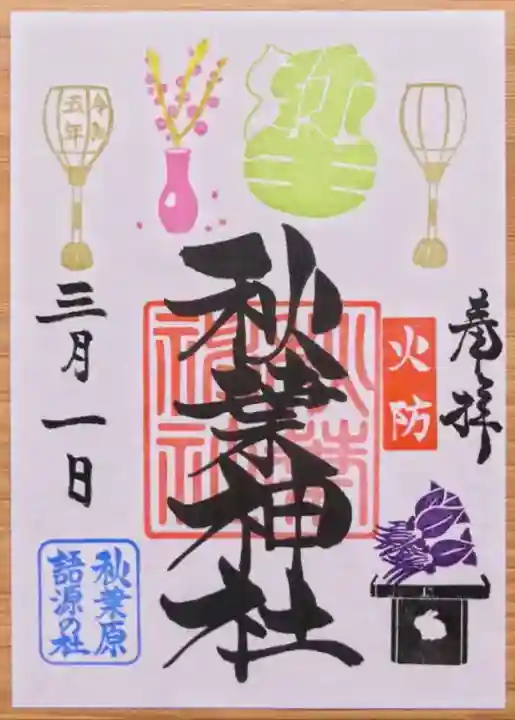 奉拝
火防
秋葉神社
秋葉
神社
令和
五年
三月一日
秋葉原
語源の社